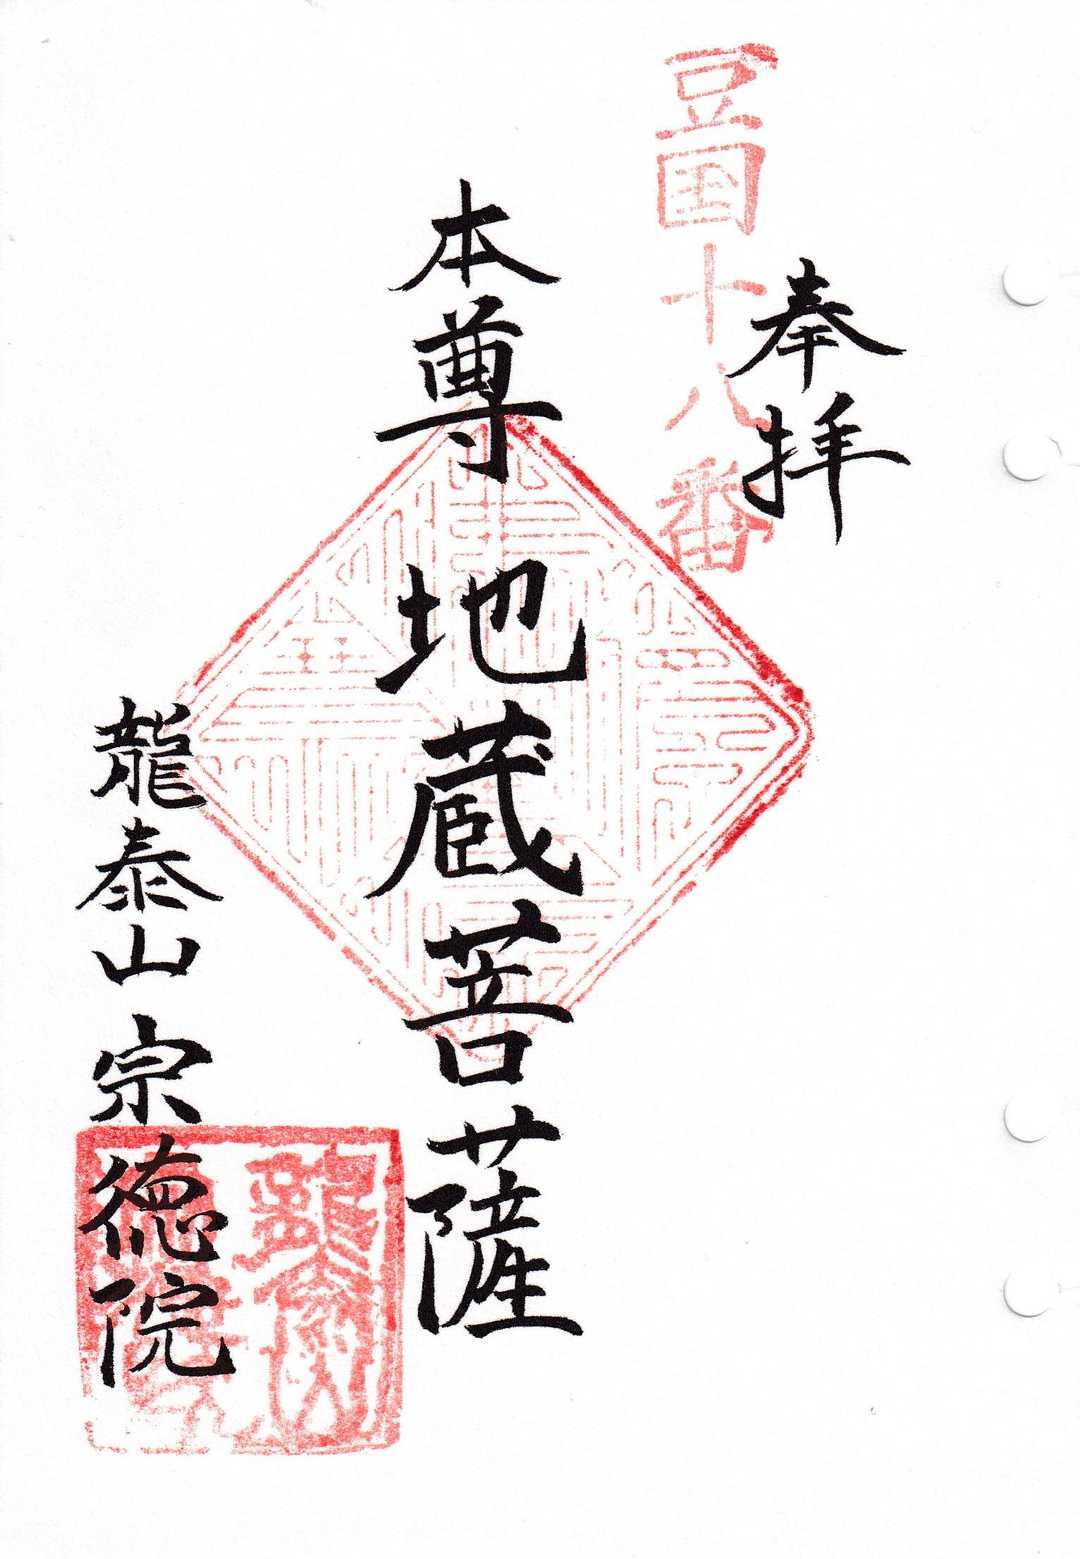 奉拝
豆国十八番
本尊 地蔵菩薩
龍泰山 宗徳院